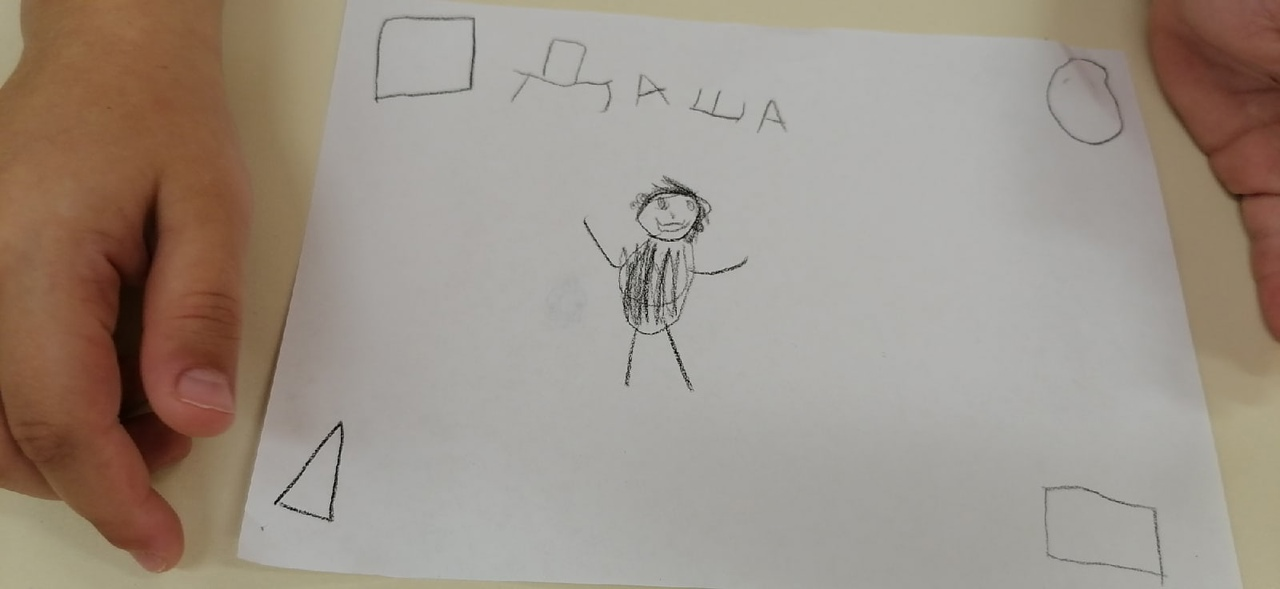 ДАША